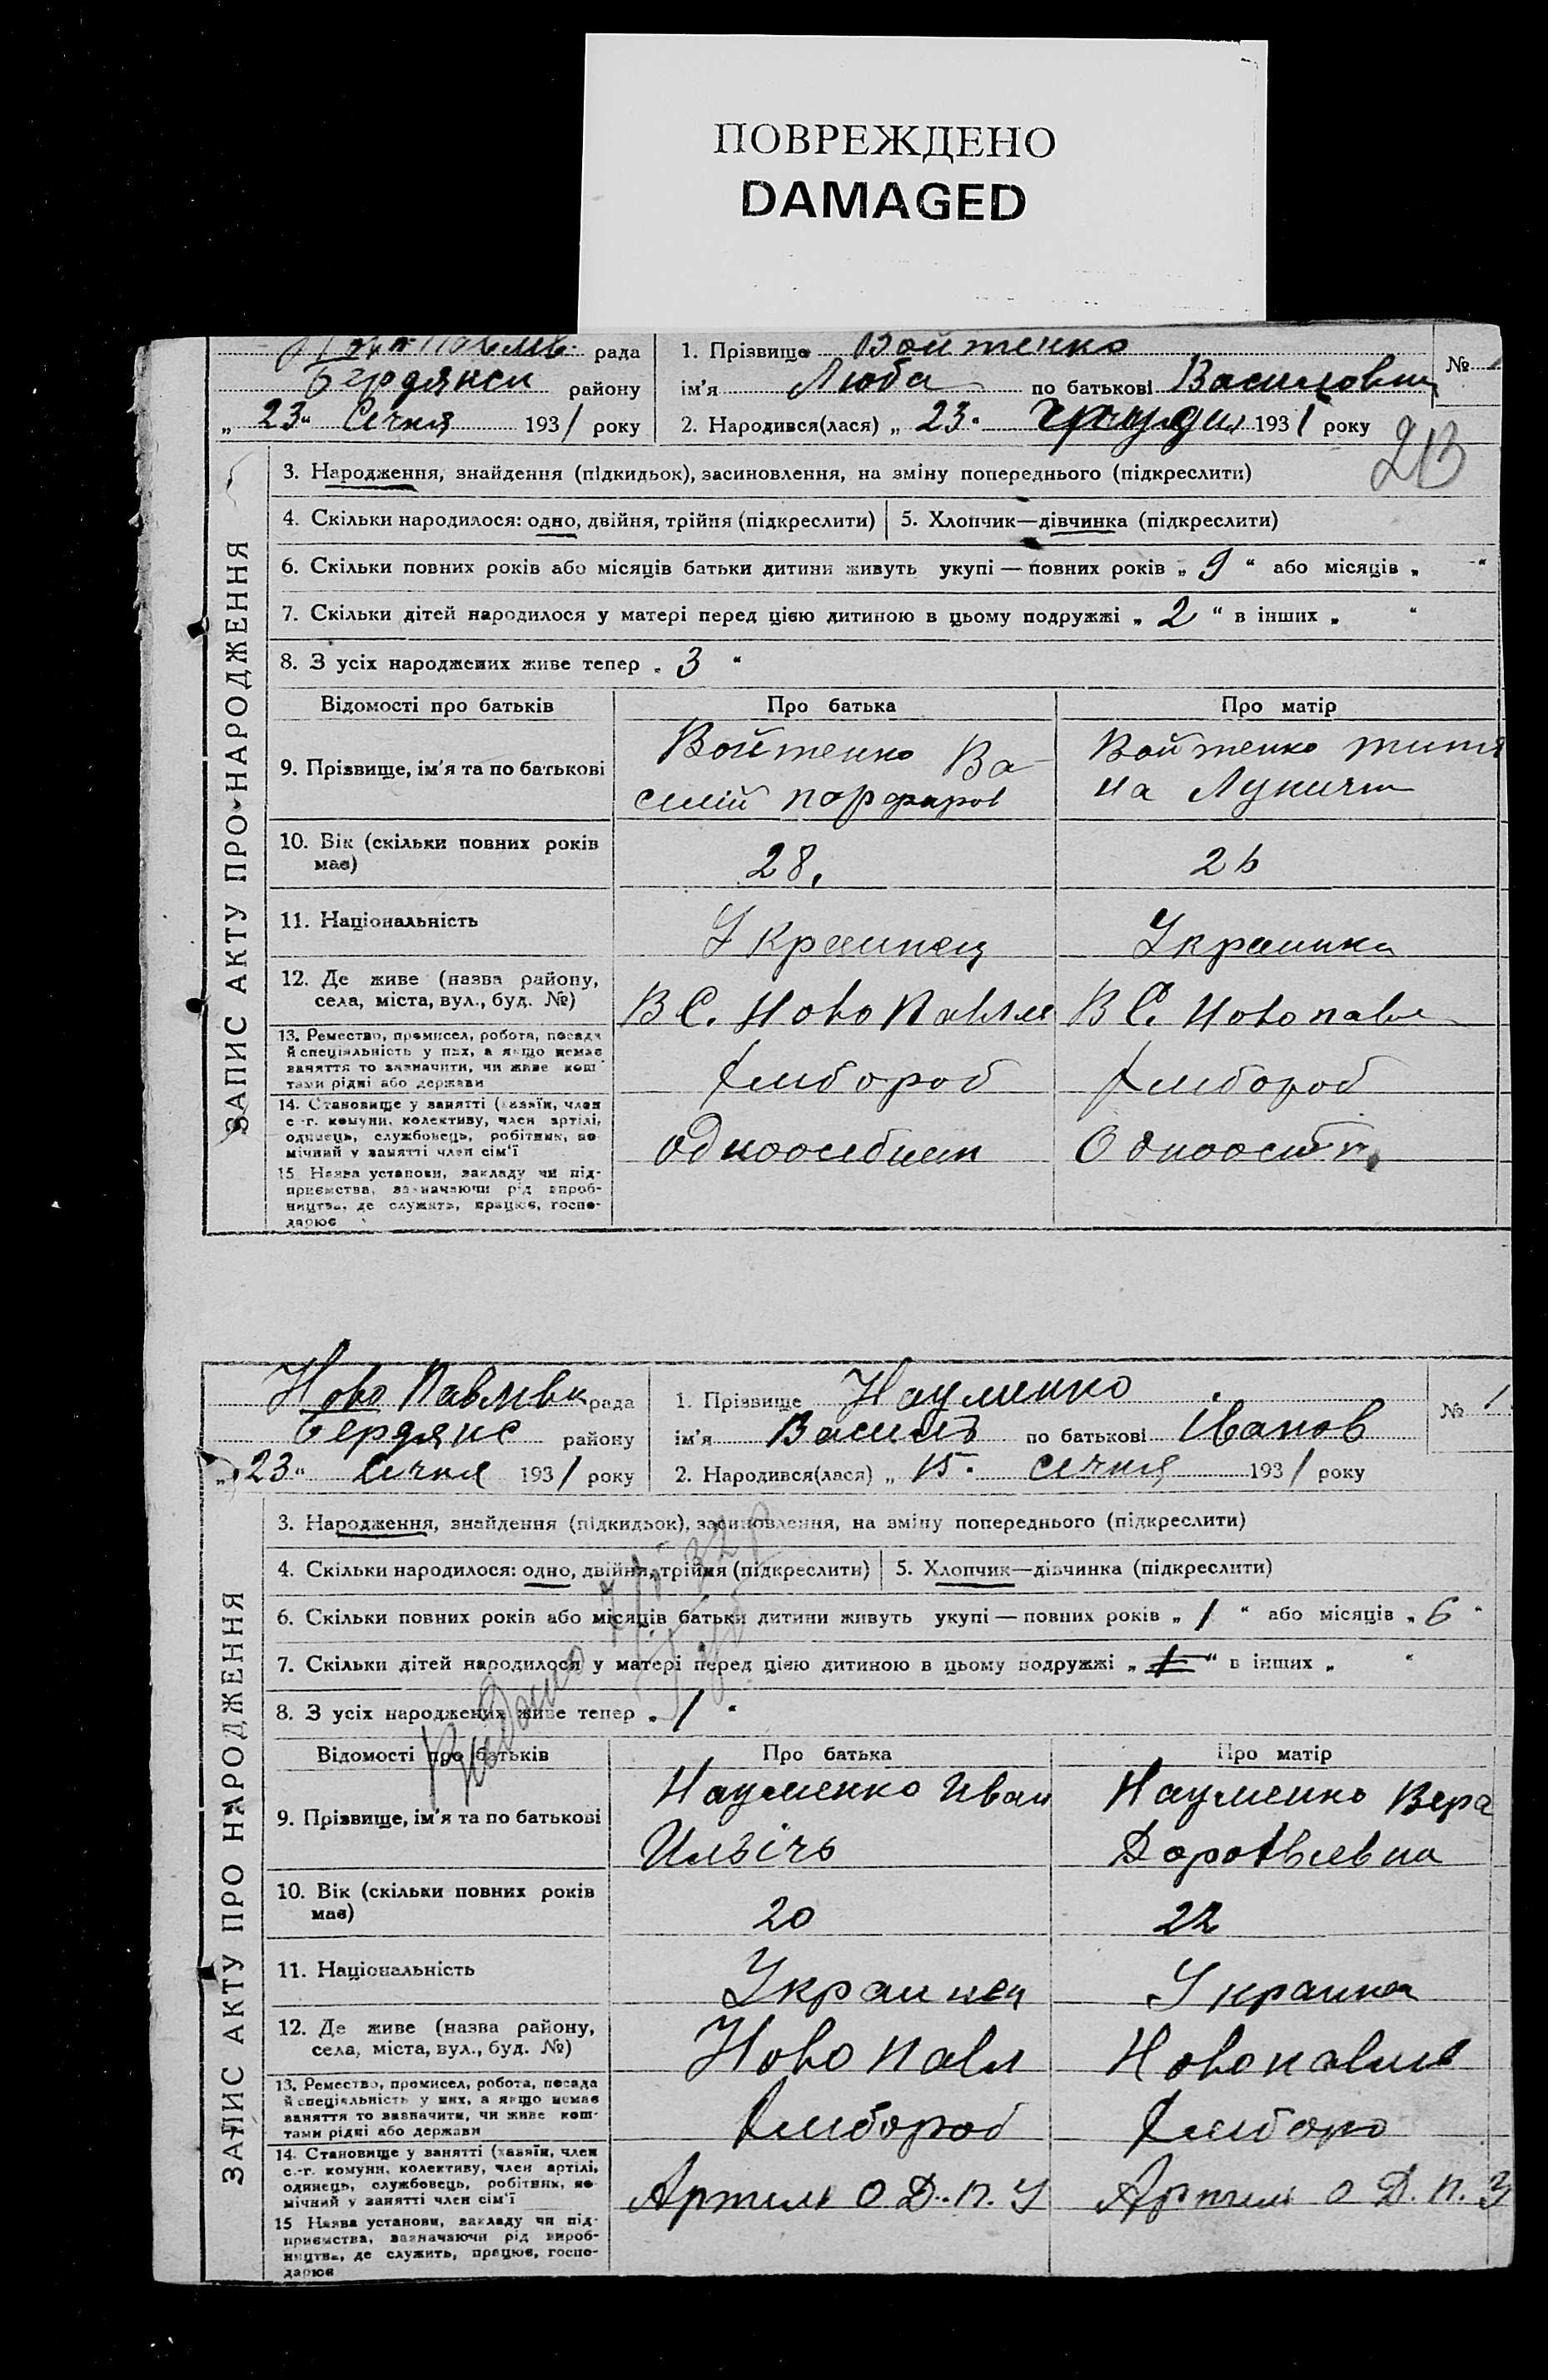 ПОВРЕЖДЕНО
DAMAGED
рада
Бердянск району
„ 23 " Січня 1931 року
1. Прізвище Войтенко
№
ім'я Люба по батькові Василовна
2. Народився(лася) „ 23 " 1931 року
213
ЗАПИС АКТУ ПРО НАРОДЖЕННЯ
3. Народження, знайдення (підкидьок), засиновлення, на зміну попереднього (підкреслити)
4. Скільки народилося: одно, двійня, трійня (підкреслити)
5. Хлопчик—дівчинка (підкреслити)
6. Скільки повних років або місяців батьки дитини живуть укупі — повних років „ 9 “ або місяців „ “
7. Скільки дітей народилося у матері перед цією дитиною в цьому подружжі „ 2 “ в інших „ “
8. З усіх народжених живе тепер „ 3 “
Відомості про батьків
Про батька
Про матір
9. Прізвище, ім'я та по батькові
Войтенко Ва-
силій порфиров
Войтенко
на Лукична
10. Вік (скільки повних років
має)
28.
26
11. Національність
Украинец
Украинка
12. Де живе (назва району,
села, міста, вул., буд. №)
В С. Ново Павли
В С. Новопавл
13. Ремество, промисел, робота, посада
й спеціяльність у них, а якщо немає
заняття то зазначити, чи живе кош-
тами рідні або держави
Хлибороб
Хлибороб
14. Становище у занятті (хазяїн, член
с.-г. комуни, колективу, член артілі,
одинець, службовець, робітник, по-
мічний у занятті член сім'ї
одноосибнек
Одноосиб
15. Назва установи, закладу чи під-
приємства, зазначаючи рід вироб-
ництва, де служить, працює, госпо-
дарює
Ново Павлівк рада
Бердянс району
„ 23 " Січня 1931 року
1. Прізвище Науменко
№ 1
ім'я Василь по батькові Іванов
2. Народився(лася) „ 15 " січня 1931 року
ЗАПИС АКТУ ПРО НАРОДЖЕННЯ
3. Народження, знайдення (підкидьок), засиновлення, на зміну попереднього (підкреслити)
4. Скільки народилося: одно, двійня, трійня (підкреслити)
5. Хлопчик—дівчинка (підкреслити)
6. Скільки повних років або місяців батьки дитини живуть укупі — повних років „ 1 “ або місяців „ 6 “
7. Скільки дітей народилося у матері перед цією дитиною в цьому подружжі „ “ в інших „ “
8. З усіх народжених живе тепер „ 1 “
Видано
Відомості про батьків
Про батька
Про матір
9. Прізвище, ім'я та по батькові
Науменко Иван
Ильічь
Науменко Вера
Дорофьевна
10. Вік (скільки повних років
має)
20
22
11. Національність
Украинец
Украинка
12. Де живе (назва району,
села, міста, вул., буд. №)
Ново Павл
Новопавлів
13. Ремество, промисел, робота, посада
й спеціяльність у них, а якщо немає
заняття то зазначити, чи живе кош-
тами рідні або держави
Хлибороб
Хлиборо
14. Становище у занятті (хазяїн, член
с.-г. комуни, колективу, член артілі,
одинець, службовець, робітник, по-
мічний у занятті член сім'ї
Артиль О Д. П. У
Артиль О Д. П. У
15 Назва установи, закладу чи під-
приємства, зазначаючи рід вироб-
ництва, де служить, працює, госпо-
дарює